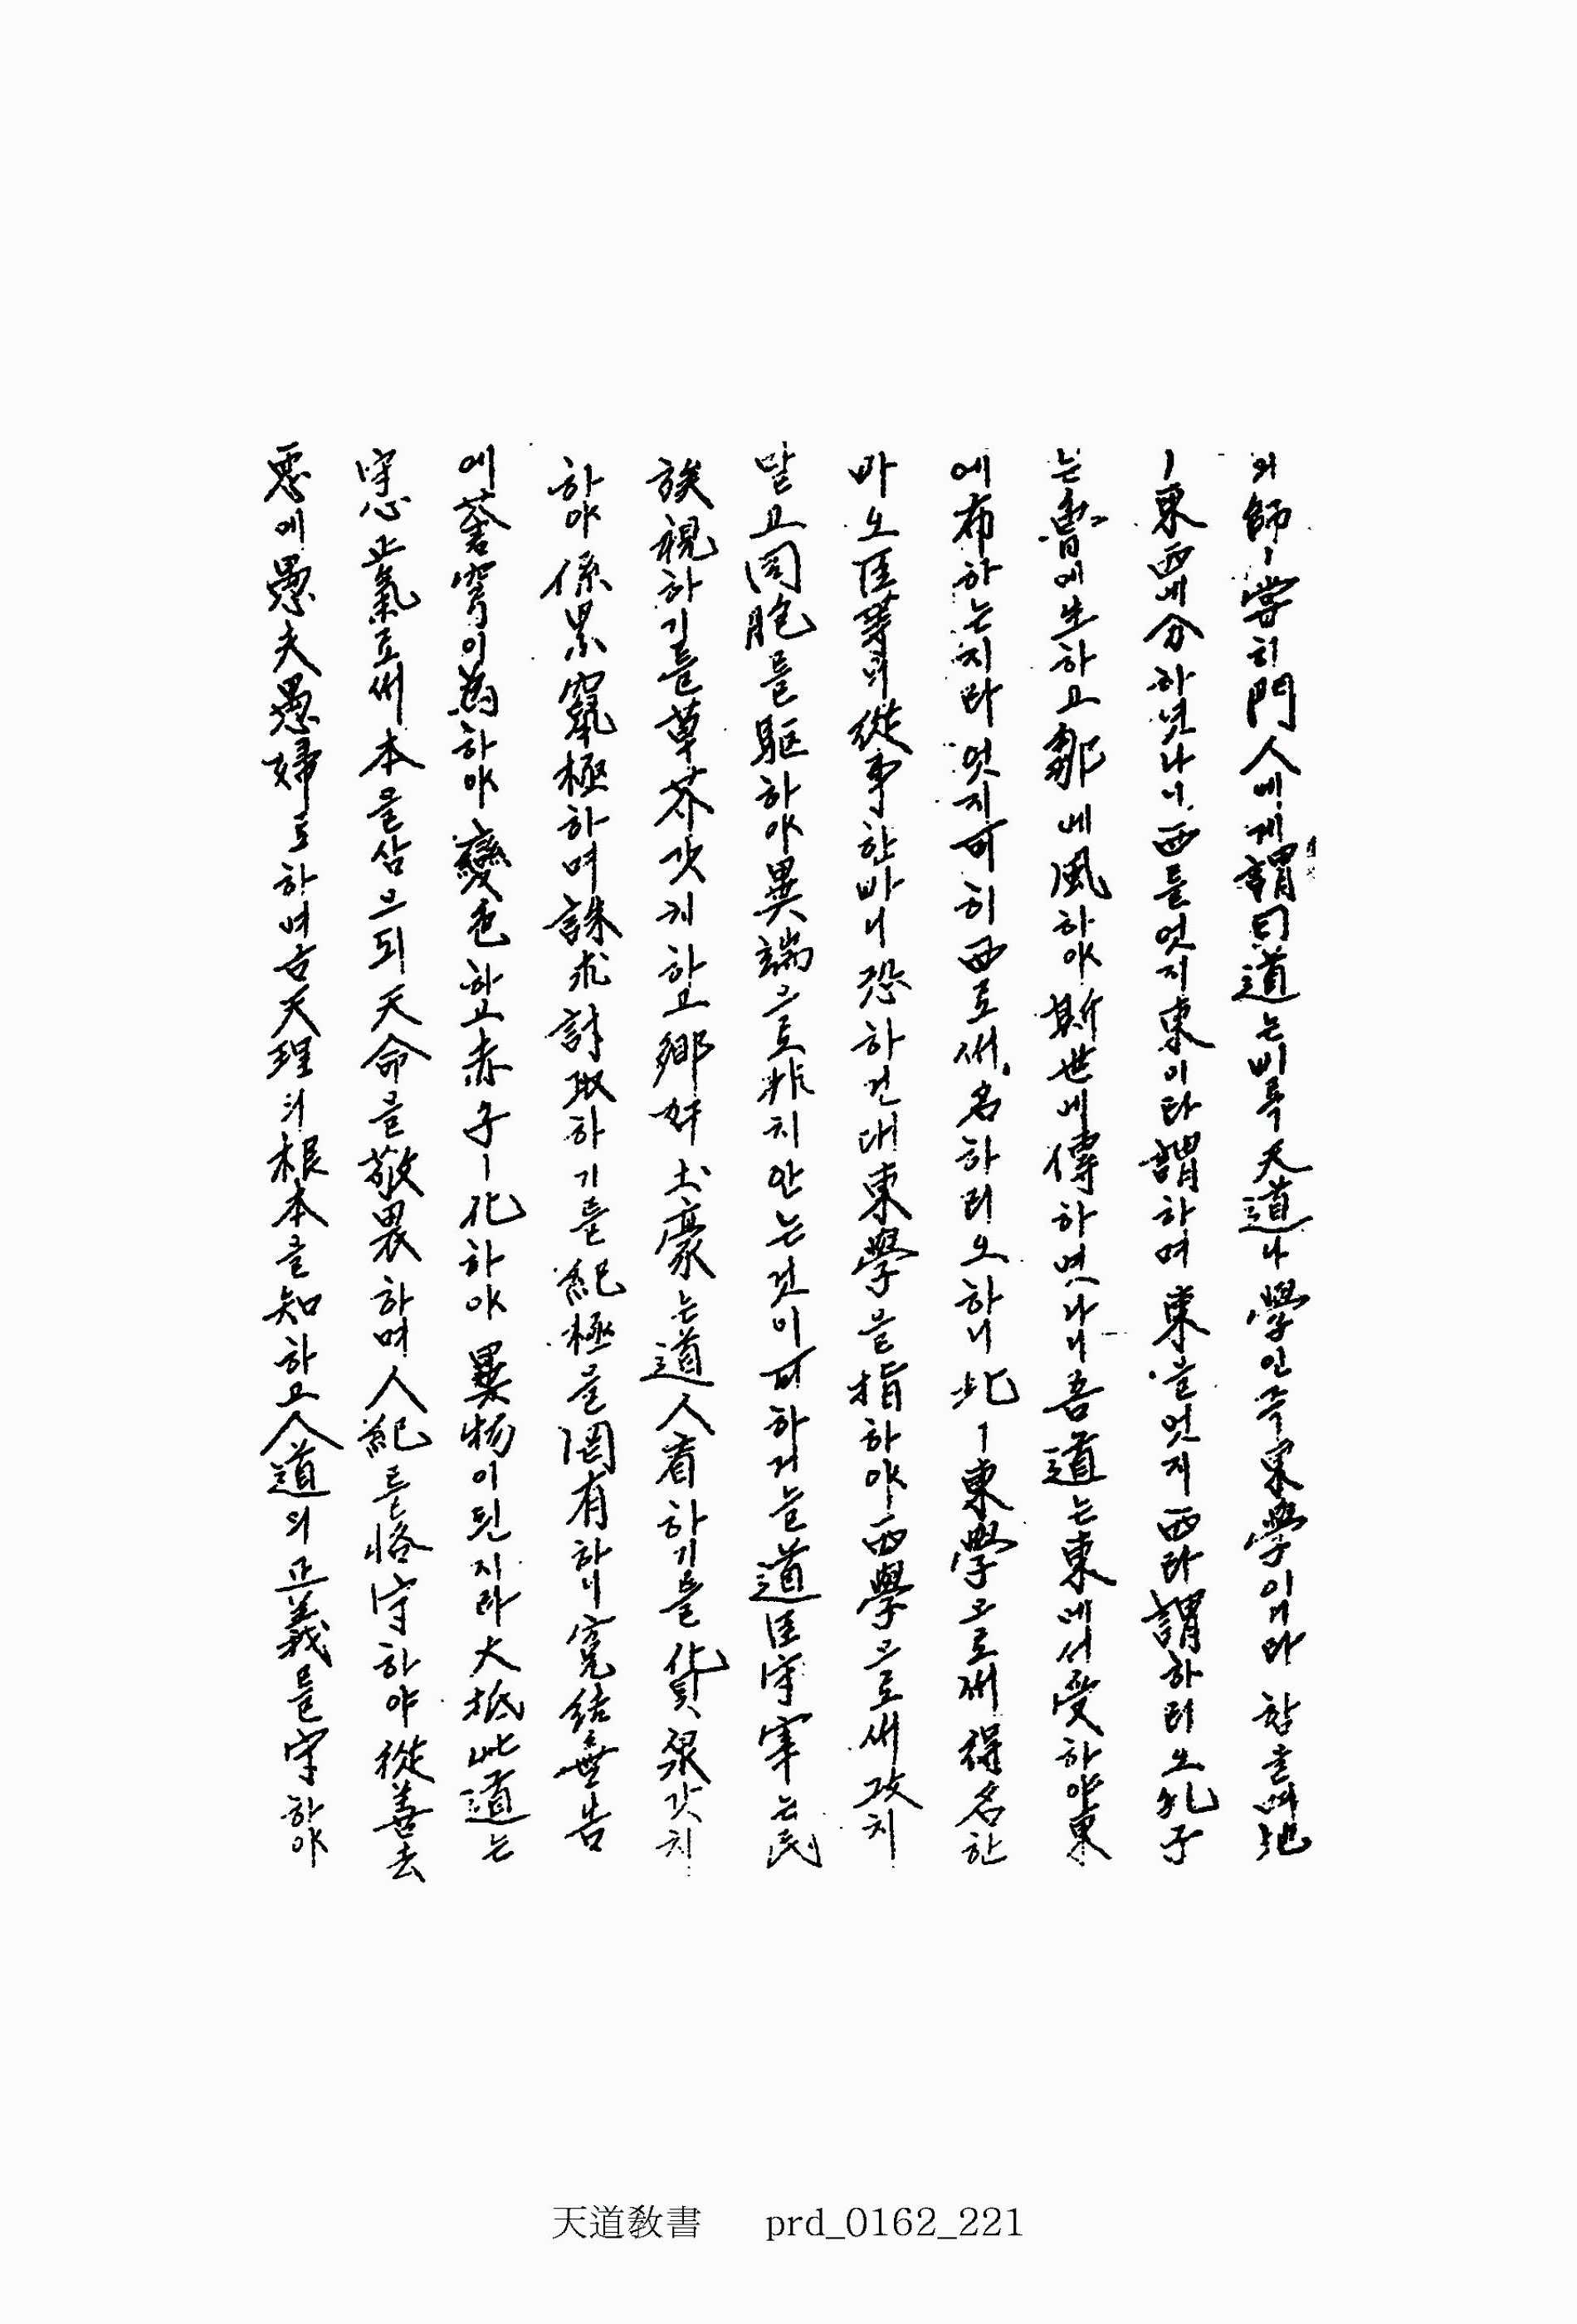 의師ㅣ嘗히門人에게謂曰道는비록天道나學인즉東學이니라참으며地
ㅣ東西에分하얏나니西를엇지東이라謂하며東을엇지西라謂하리오孔子
는魯에生하고鄒에風하야斯世에傳하엿나니吾道는東에서受하야東
에布하는지라엇지可히西로써名하리오하니此ㅣ東學으로써得名한
바오臣等의從事한바니恐하건대東學을指하야西學으로써攻치
말고同胞를駈하야異端으로非치안는것이可하거늘道臣守宰는民
族視하기를草芥갓게하고鄕奸土豪는道人看하기를貨泉갓치
하야係累窮極하며誅求討取하기를紀極을罔有하니寃結無告
에蒼穹이爲하야變色하고赤子ㅣ化하야異物이된지라大抵此道는
守心正氣로써本을삼으되天命을敬畏하며人紀를恪守하야從善去
惡에愚夫愚婦도하여금天理의根本을知하고人道의正義를守하야
天道敎書 prd_0162_221